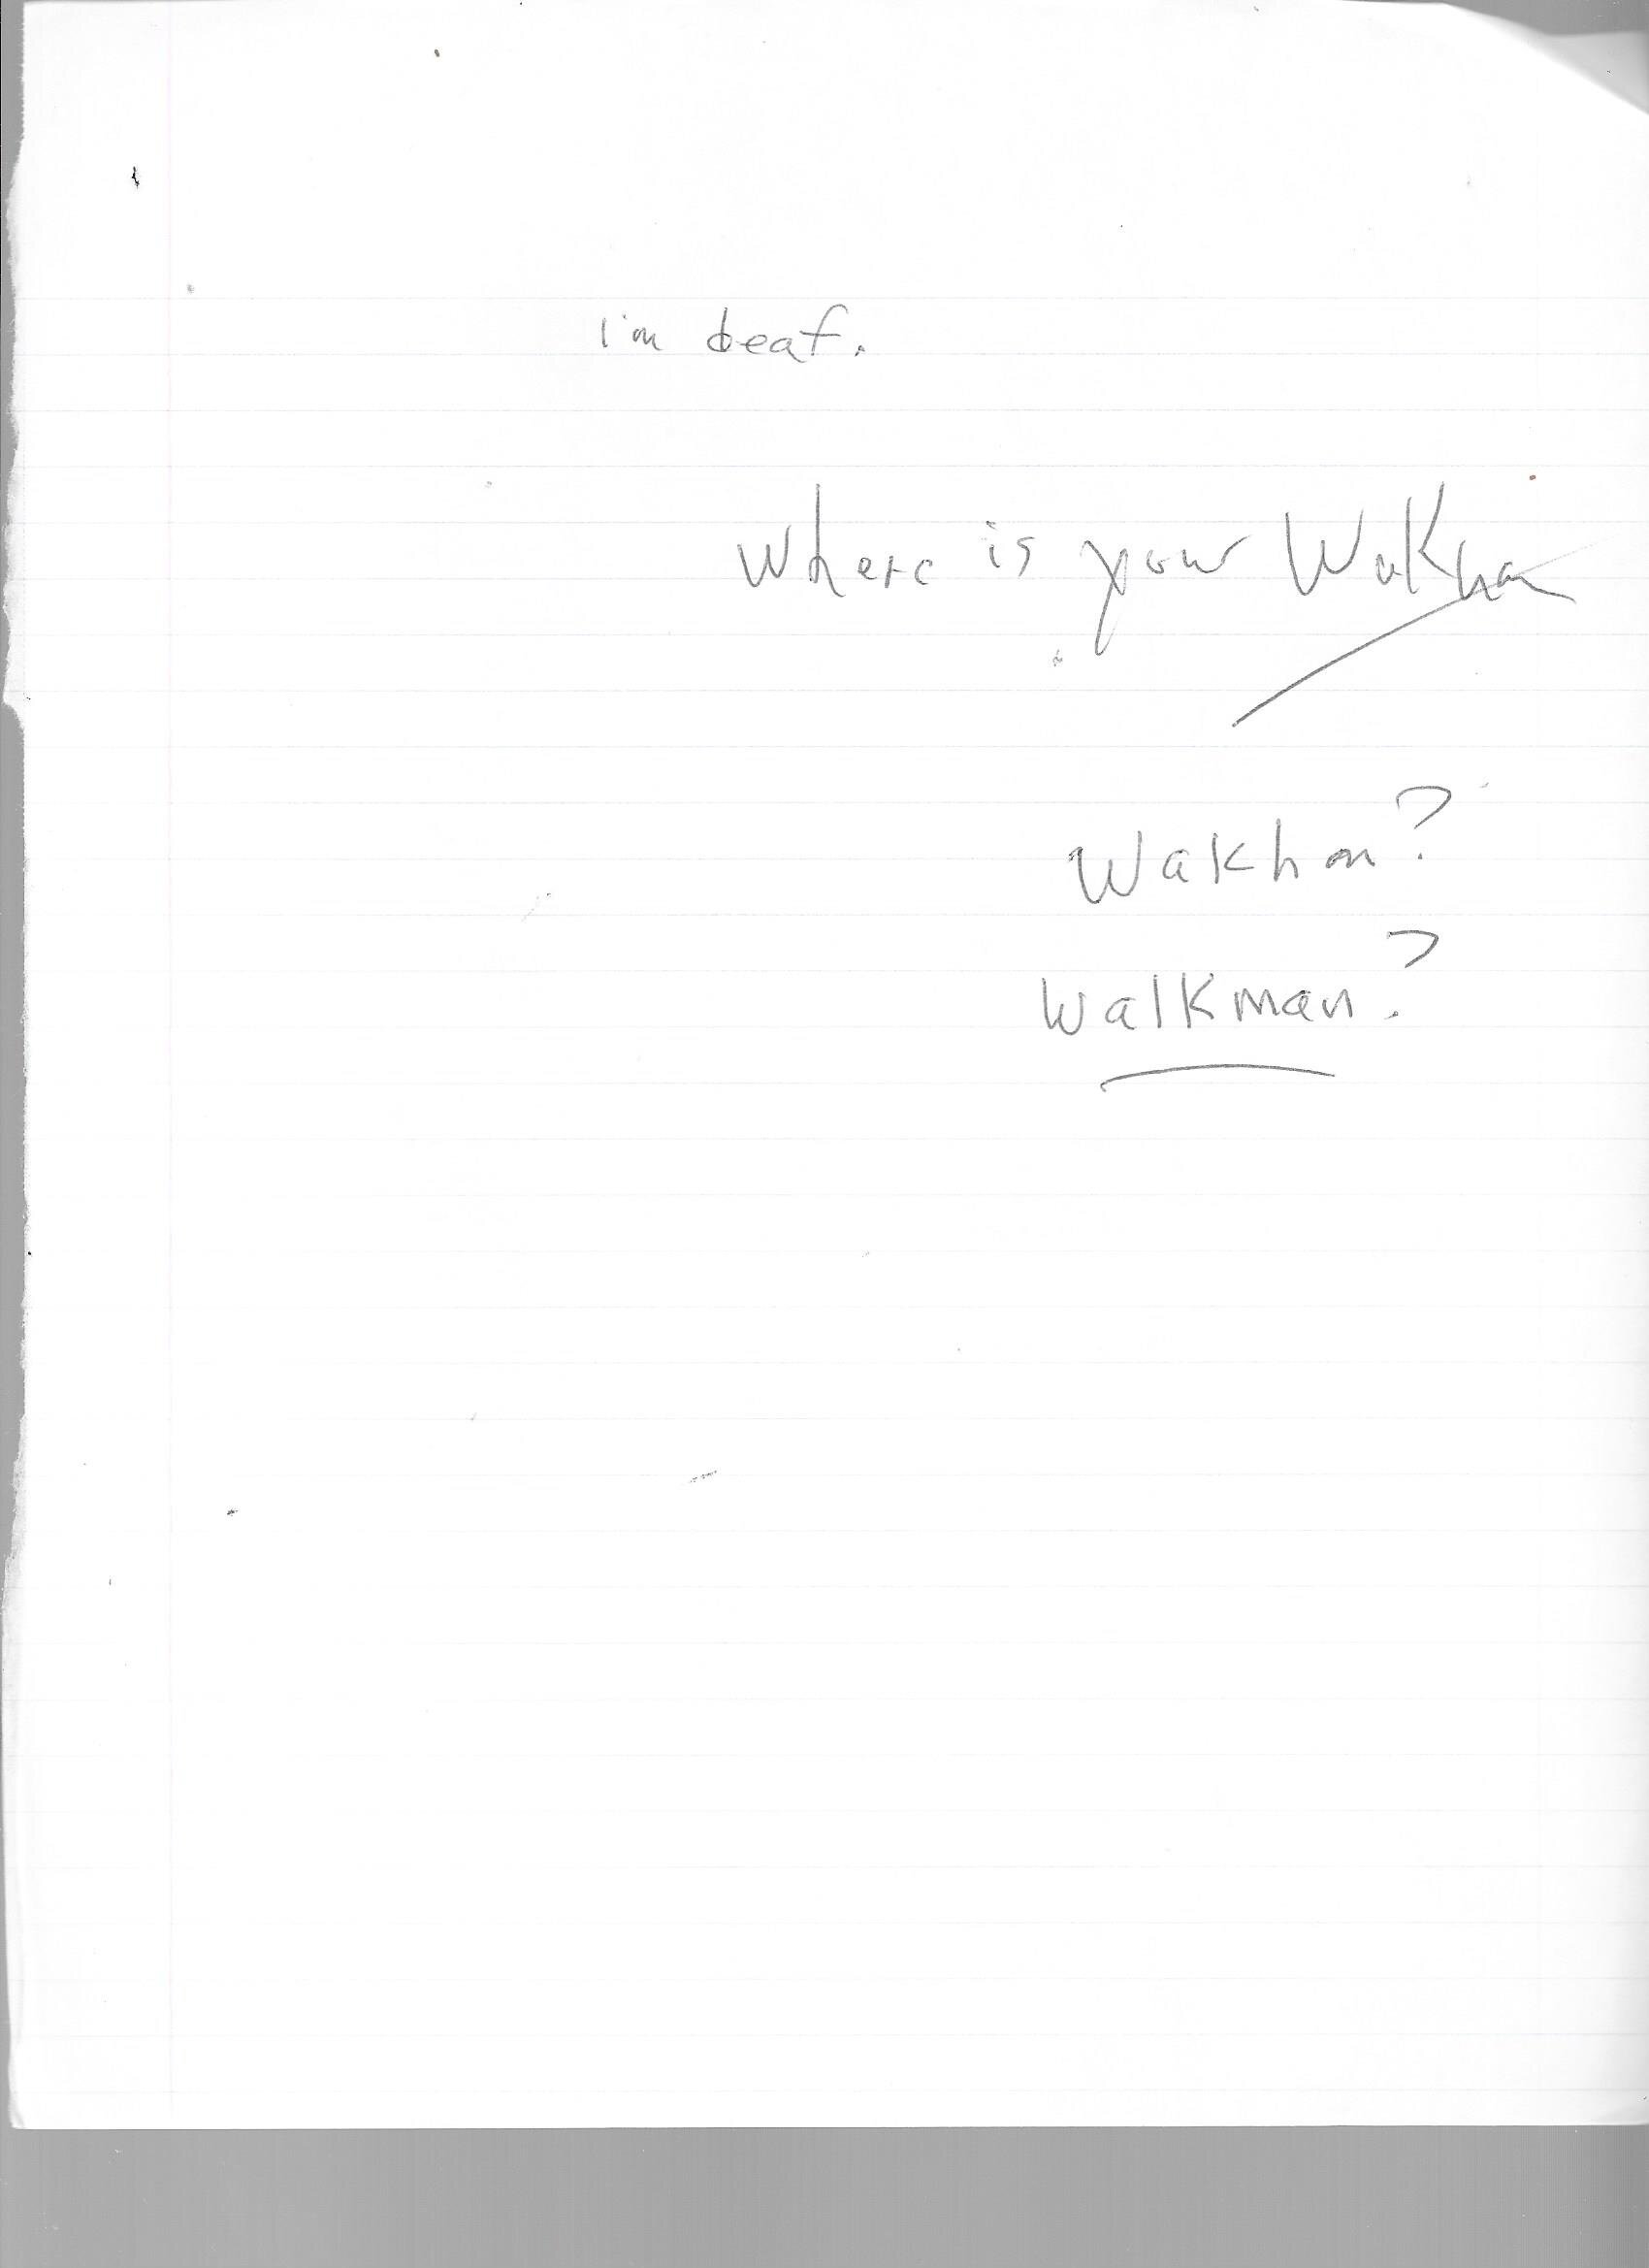 I'm deaf.
Where is your Wakha
Wakhan?
Walkman?